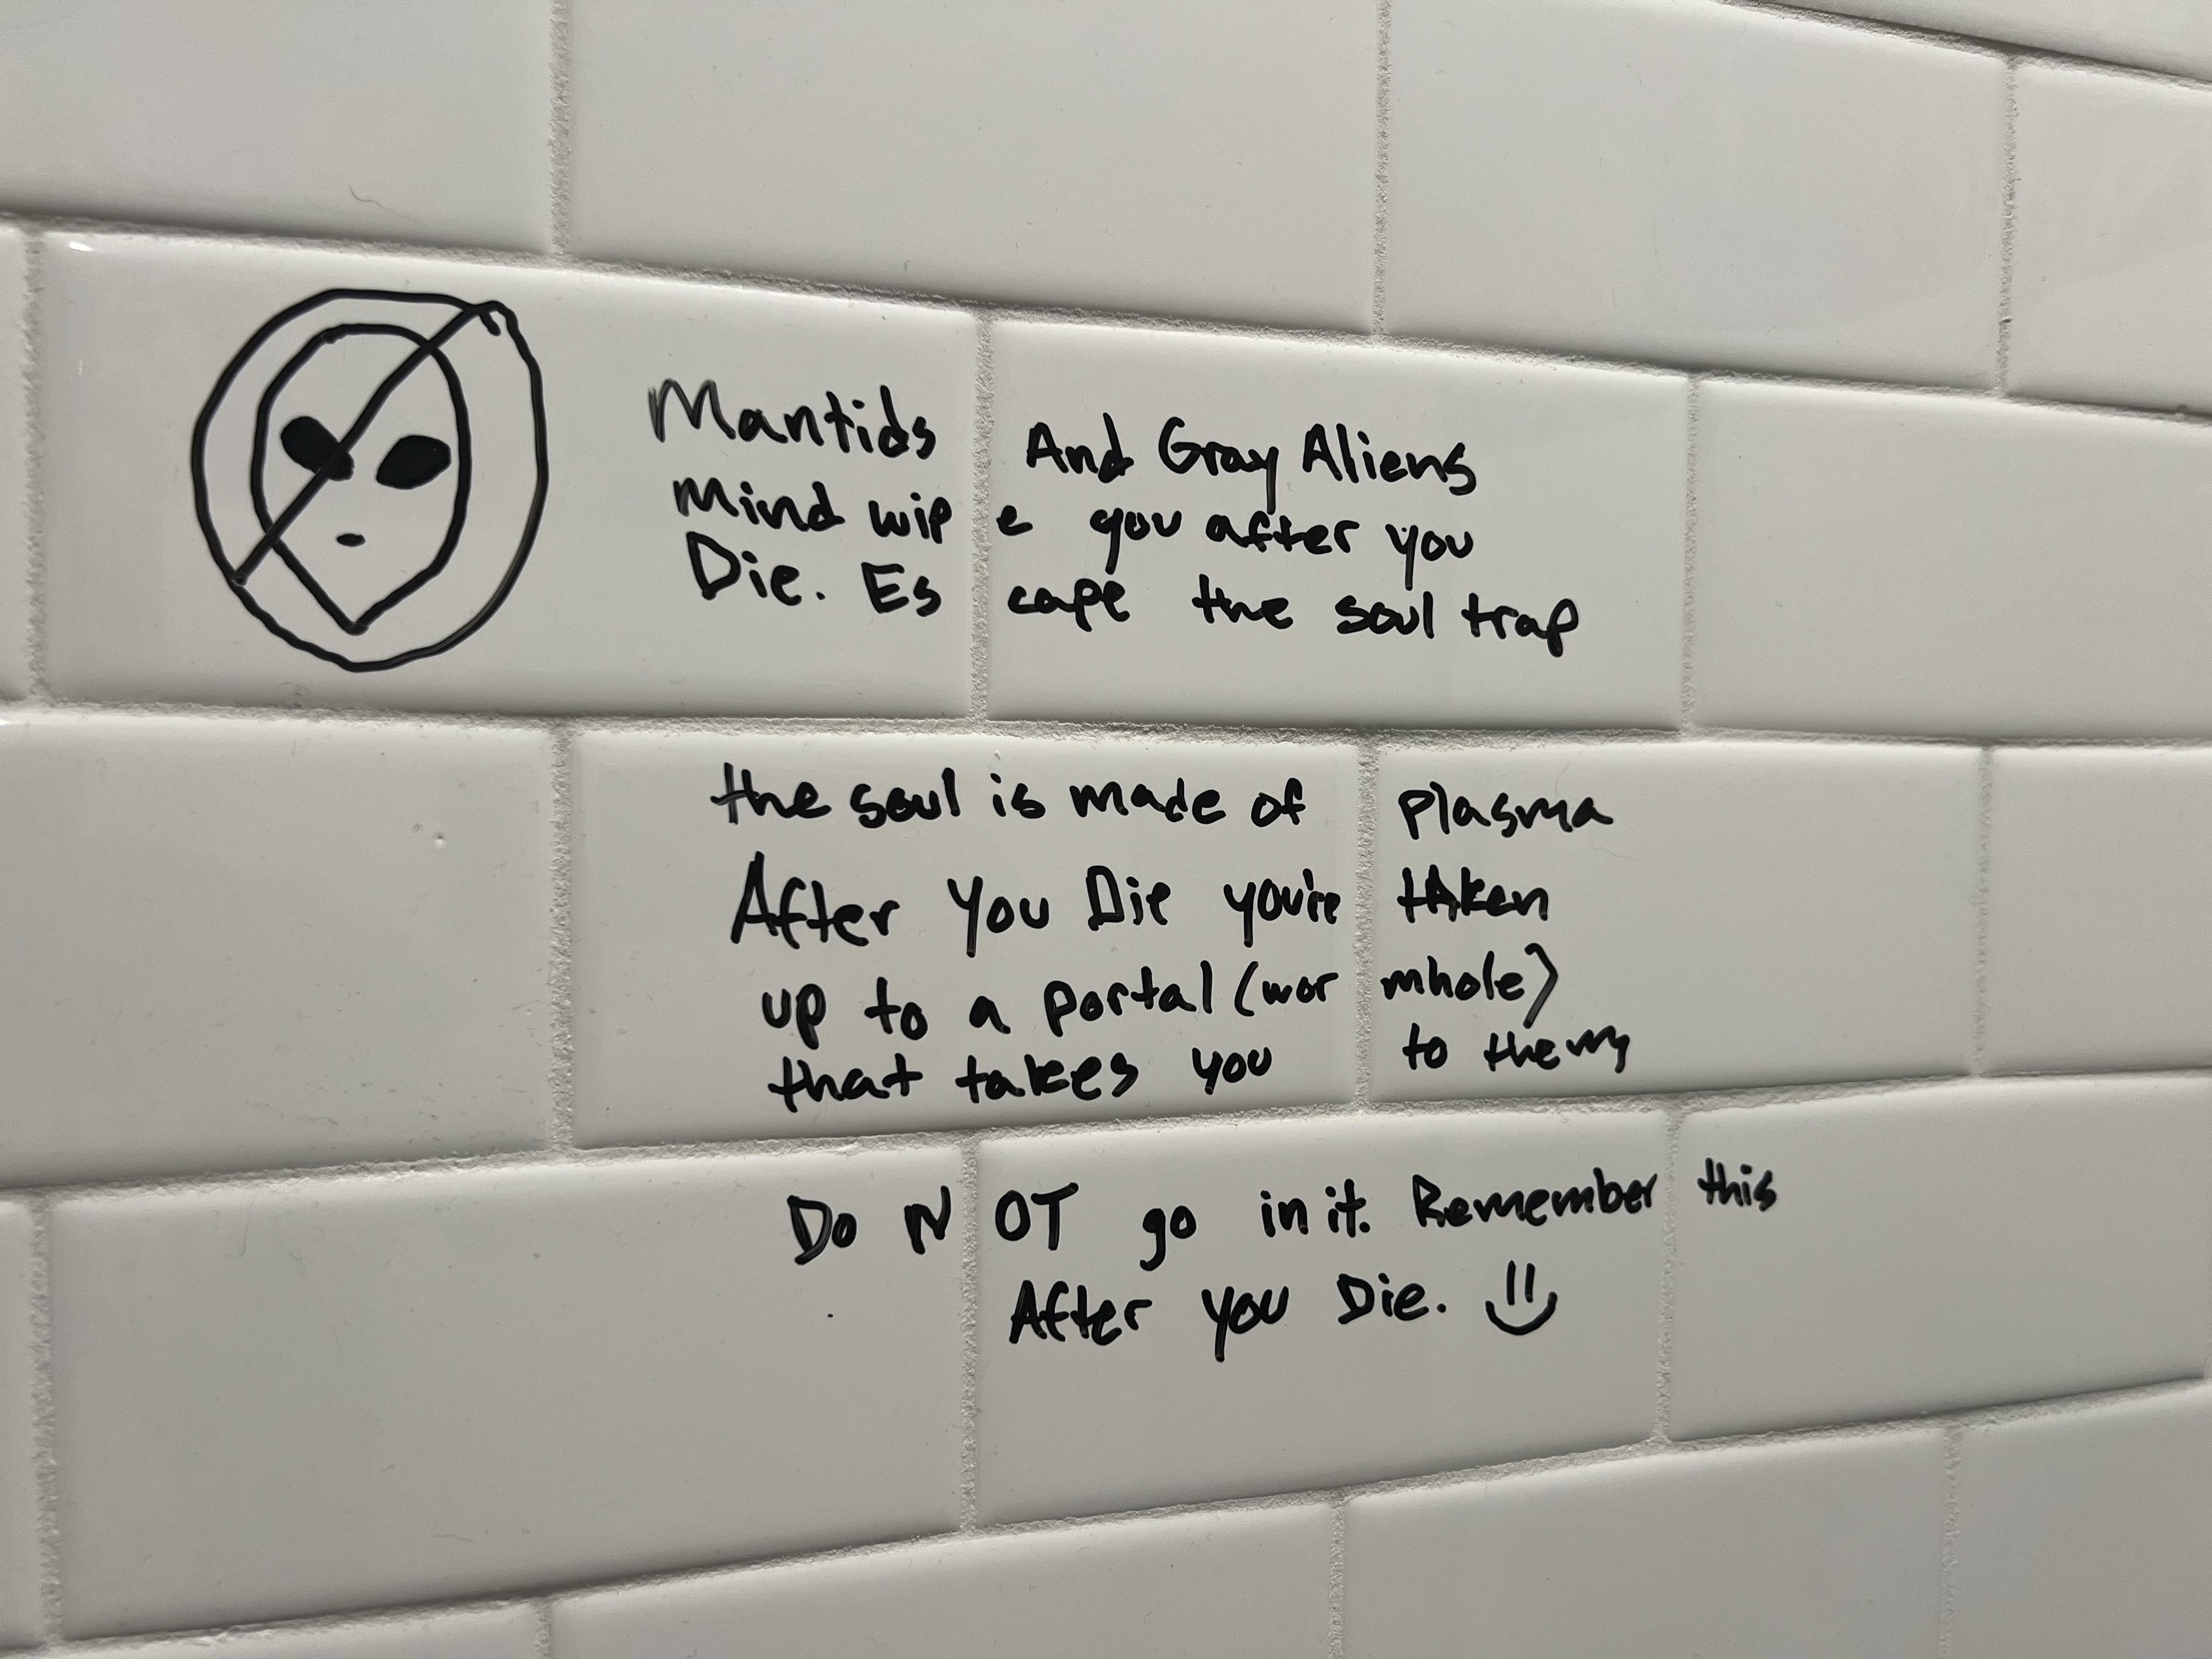 Mantids And Gray Aliens
Mind wipe you after you
Die. Escape the soul trap
the soul is made of plasma
After you Die you're taken
up to a portal (wormhole)
that takes you to them
Do NOT go in it. Remember this
After you Die.